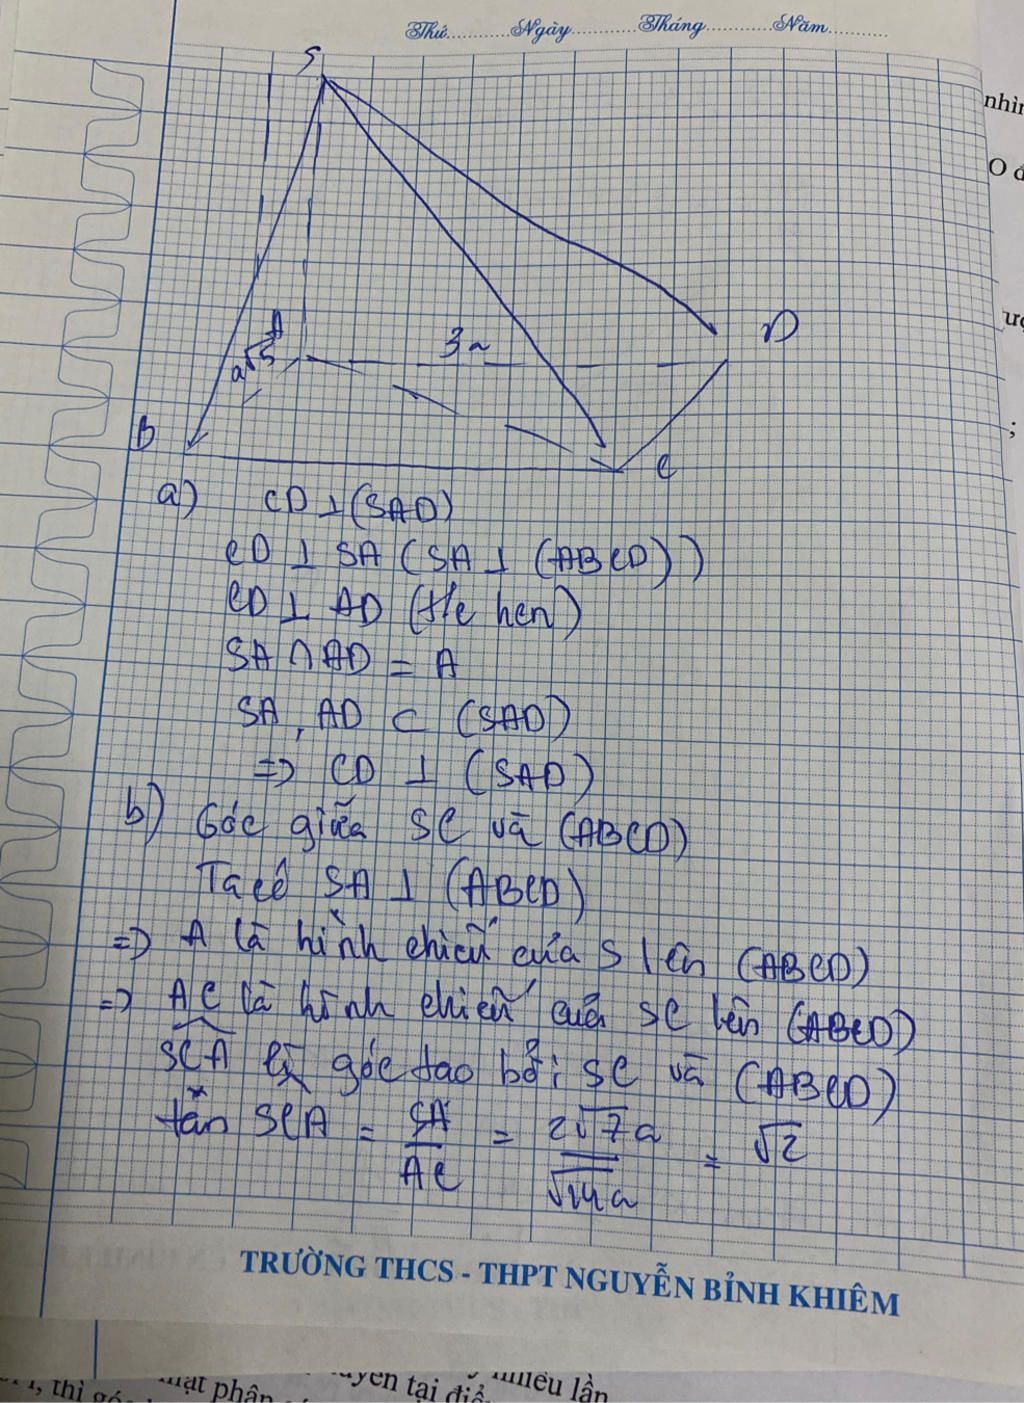 Thứ............Ngày............Tháng............Năm............
S
nhìn
O đ
A
3a
D
a√5
B
C
;
a) CD ⊥ (SAD)
CD ⊥ SA (SA ⊥ (ABCD))
CD ⊥ AD
SA ∩ AD = A
SA, AD ⊂ (SAD)
=> CD ⊥ (SAD)
b) Góc giữa SC và (ABCD)
Ta có SA ⊥ (ABCD)
=> A là hình chiếu của S lên (ABCD)
=> AC là hình chiếu của SC lên (ABCD)
SCA là góc tạo bởi SC và (ABCD)
tan SCA = SA/AC = 2√7a/√14a = √2
TRƯỜNG THCS - THPT NGUYỄN BỈNH KHIÊM
, thì mặt phân tại nhiêu lần